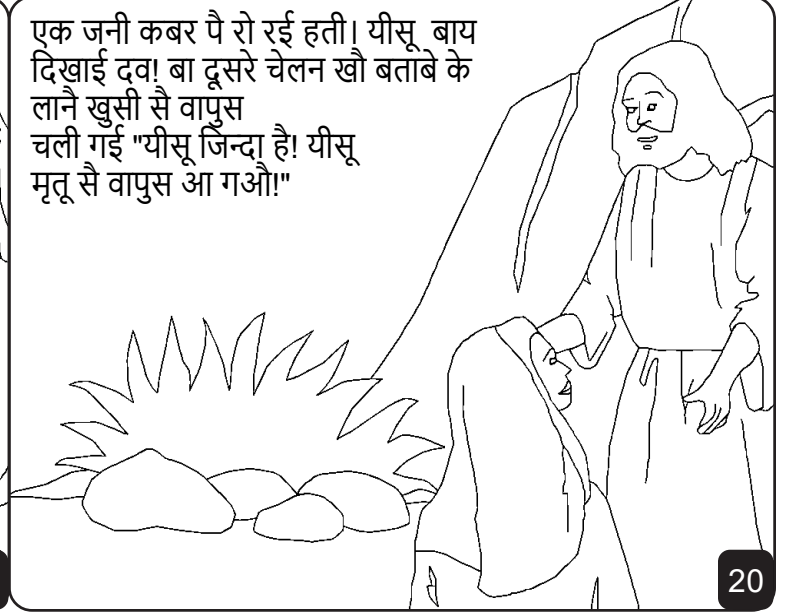 एक जनी कबर पै रो रई हती। यीसू  बाय
दिखाई दव! बा दूसरे चेलन खौ बताबे के
लानै खुसी सै वापुस
चली गई "यीसू जिन्दा है! यीसू
मृतू सै वापुस आ गऔ!"
20